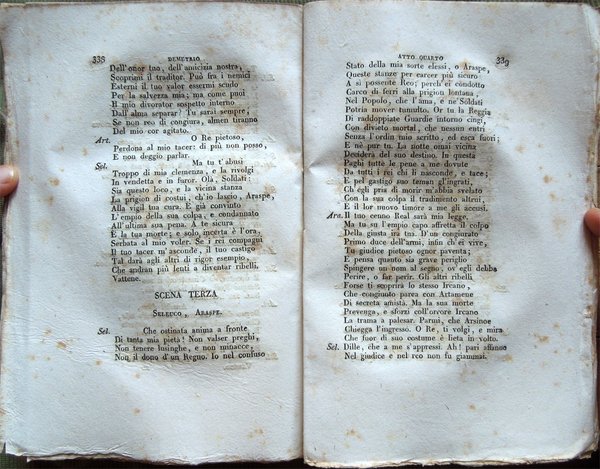 338
DEMETRIO
Dell'onor tuo, dell'amicizia nostra,
Scoprimi il traditor. Può fra i nemici
Esterni il tuo valor essermi scudo
Per la salvezza mia; ma come puoi
Il mio divorator sospetto interno
Dall'alma separar? Tu sarai sempre,
Se non reo di congiura, almen tiranno
Del mio cor agitato.
Art. O Re pietoso,
Perdona al mio tacer: di più non posso,
E non deggio parlar.
Sel. Ma tu t'abusi
Troppo di mia clemenza, e la rivolgi
In vendetta e in furor. Olà, Soldati:
Sia questo loco, e la vicina stanza
La prigion di costui, ch'io lascio, Araspe,
Alla vigil tua cura. E già convinto
L'empio della sua colpa, e condannato
All'ultima sua pena. A te sicura
E la tua morte; e solo incerta è l'ora,
Serbata al mio voler. Se i rei compagni
Il tuo tacer m'asconde, il tuo castigo
Tal darà agli altri di rigor esempio,
Che andran più lenti a diventar ribelli.
Vattene.
SCENA TERZA
SELEUCO, ARASPE.
Sel. Che ostinata anima a fronte
Di tanta mia pietà! Non valser preghi,
Non tenere lusinghe, e non minacce,
Non il dono d'un Regno. Io nel confuso
ATTO QUARTO
339
Stato della mia sorte elessi, o Araspe,
Queste stanze per carcer più sicuro
A sì possente Reo; perch'ei condotto
Carco di ferri alla prigion lontana,
Nel Popolo, che l'ama, e ne' Soldati
Potria mover tumulto. Or tu la Reggia
Di raddoppiate Guardie intorno cingi,
Con divieto mortal, che nessun entri
Senza l'ordin mio scritto, ed esca fuori;
E nè pur tu. La notte omai vicina
Deciderà del suo destino. In questa
Paghi tutte le pene a me dovute
Da tutti i rei chi li nasconde, e tace;
E pel gastigo suo teman gl'ingrati,
Ch'egli pria di morir m'abbia svelato
Con la sua colpa il tradimento altrui,
E il lor nuovo timore a me gli accusi.
Ara. Il tuo cenno Real sarà mia legge.
Ma tu su l'empio capo affretta il colpo
Della giusta ira tua. D'un congiurato
Primo duce dell'armi, infin ch'ei vive,
Tu giudice pietoso ognor paventa;
E pensa quanto sia grave periglio
Spingere un uom al segno, ov'egli debba
Perire, o far perir. Gli altri ribelli
Forse ti scoprirà lo stesso Ircano,
Che congiunto parea con Artamene
Di secreta amistà. Ma la sua morte
Prevenga, e sforzi coll'orrore Ircano
La trama a palesar. Parmi, che Arsinoe
Chiegga l'ingresso. O Re, ti volgi, e mira
Che fuor di suo costume è lieta in volto.
Sel. Dille, che a me s'appressi. Ah! pari affanno
Nel giudice e nel reo non fu giammai.